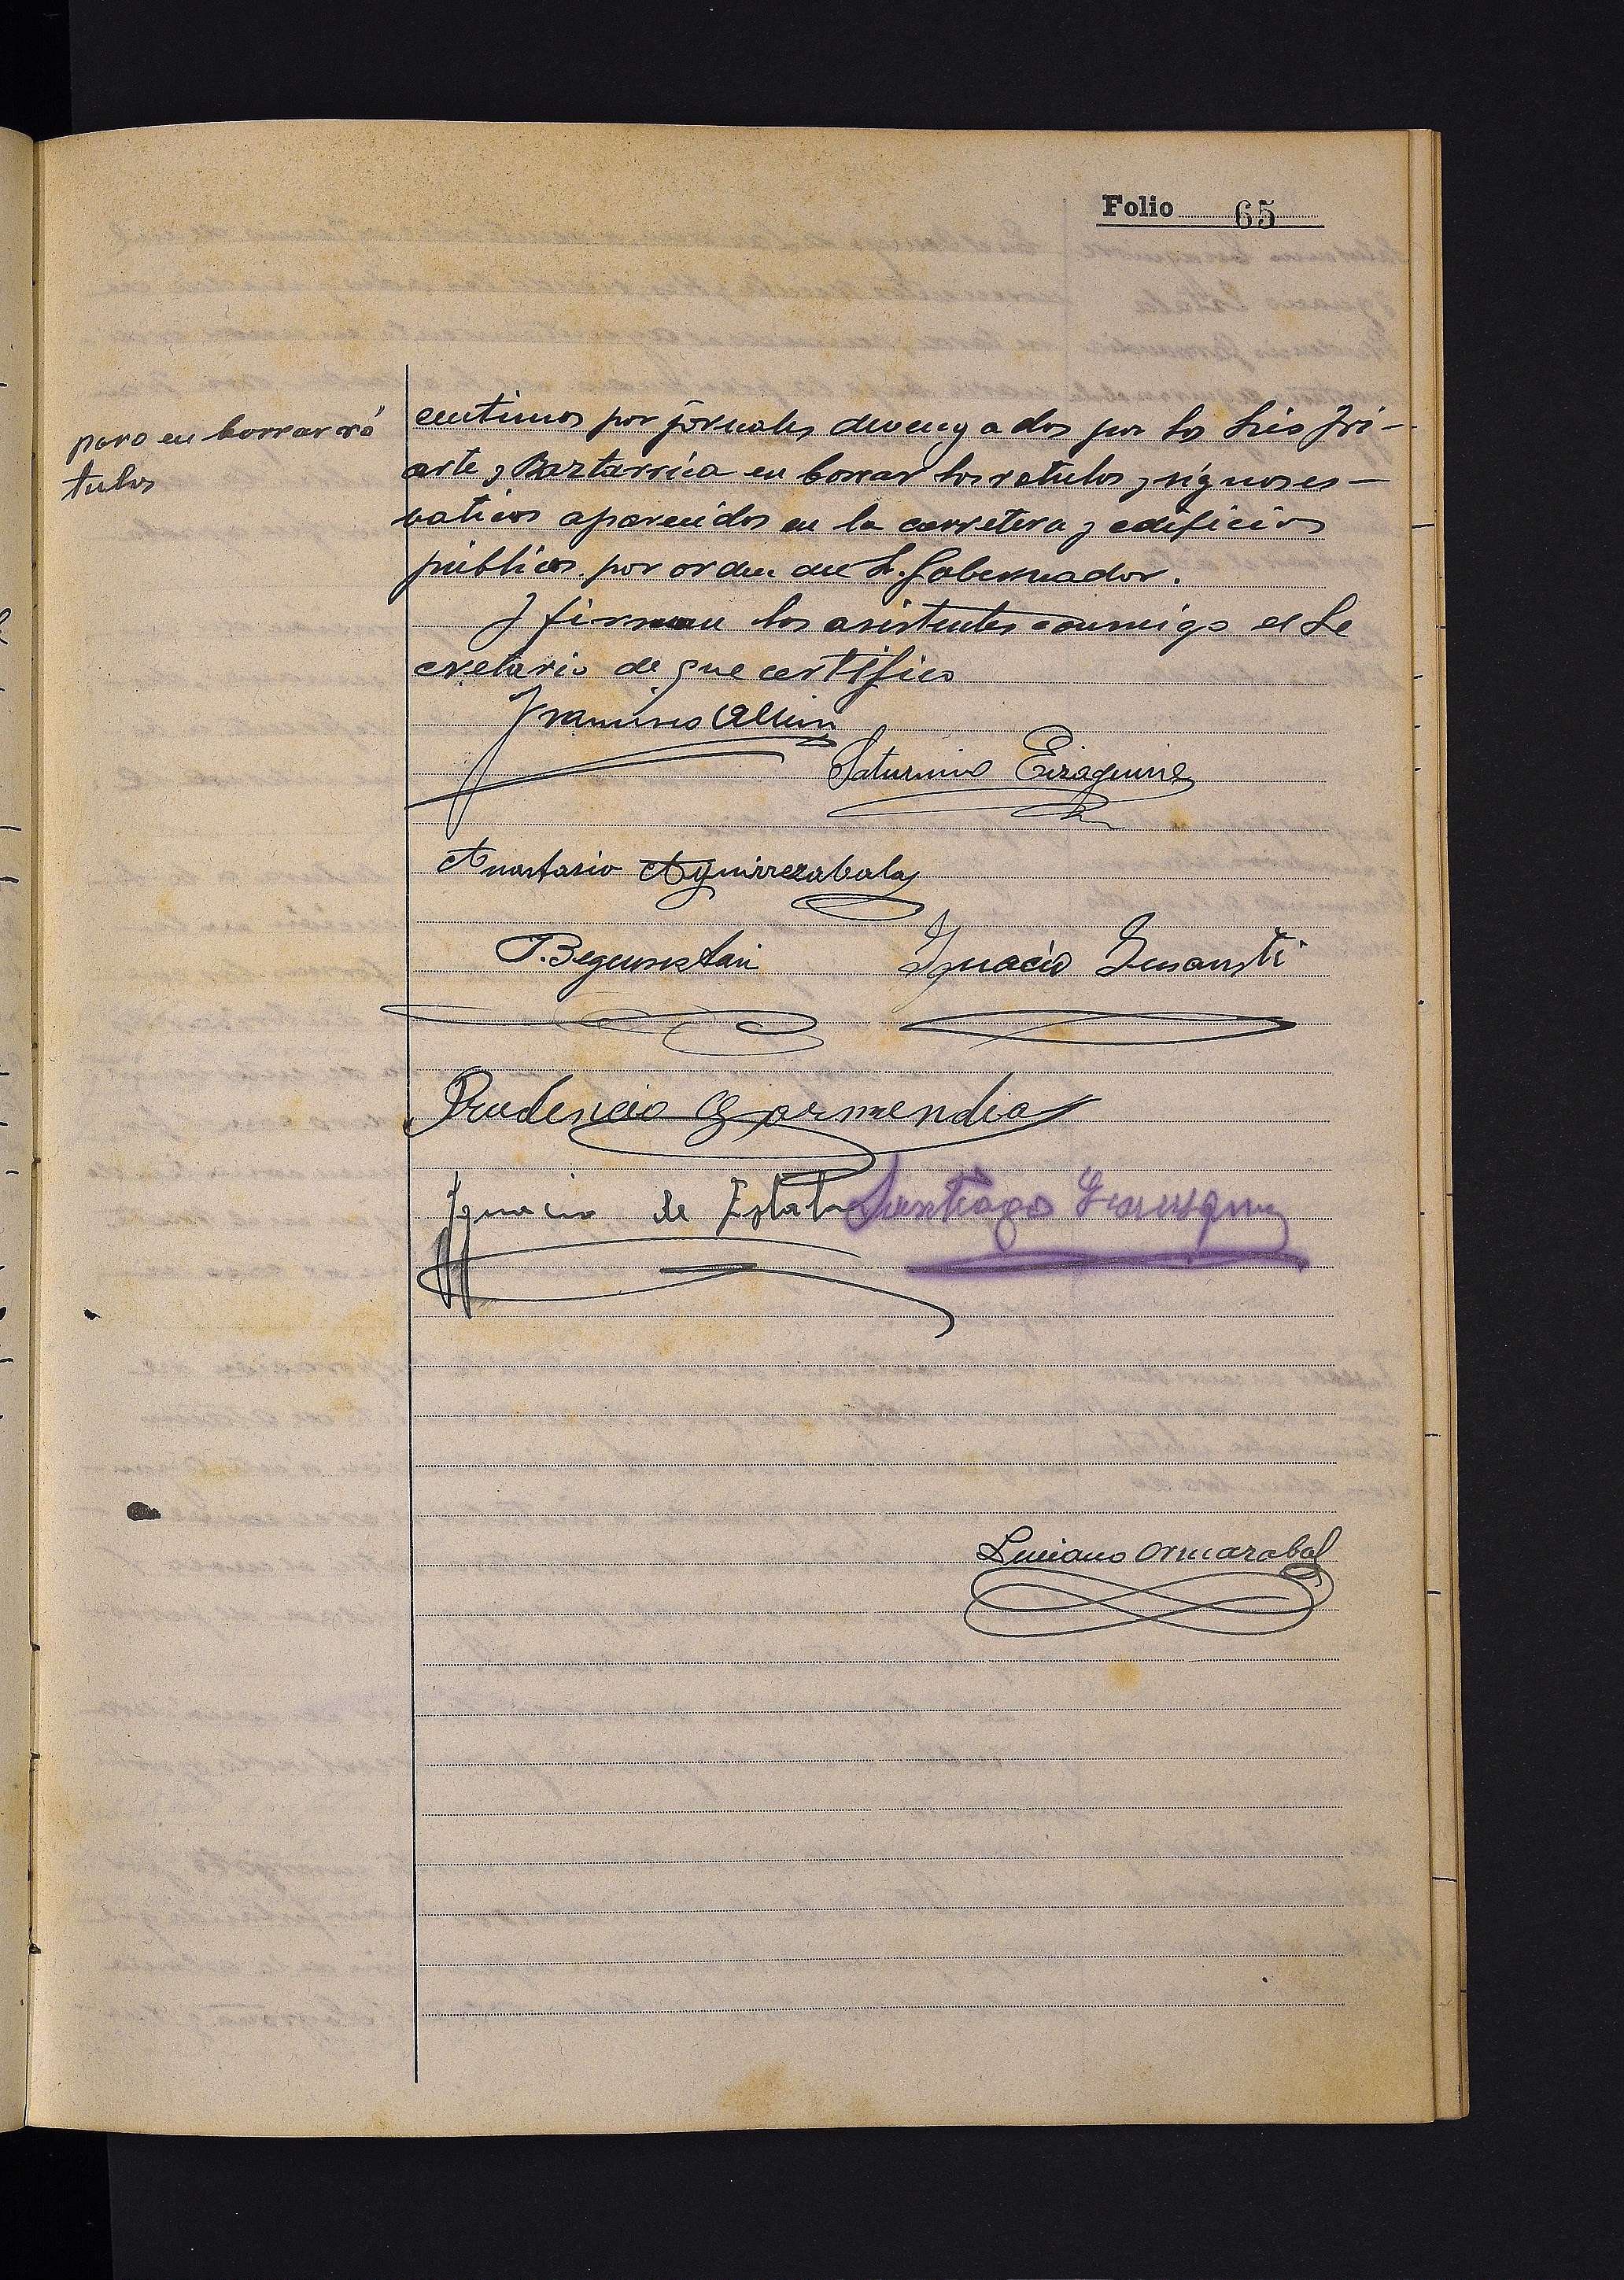 Folio 65
para en borrar ró
tulos
centimos por jornales devengados por los Sres Iri-
arte y Baztarrica en borrar los rotulos y signos es-
vaticos aparecidos en la carretera y edificios
publicos por orden del Sr. Gobernador.
Y firman los asistentes conmigo el Se
cretario de que certifico
Francisco
Saturnino Eizaguirre
Anastasio Aguirrezabala
J. Beguiristain Ignacio Insausti
Prudencio Garmendia
Ignacio de Estala Santiago
Luciano Ormazabal